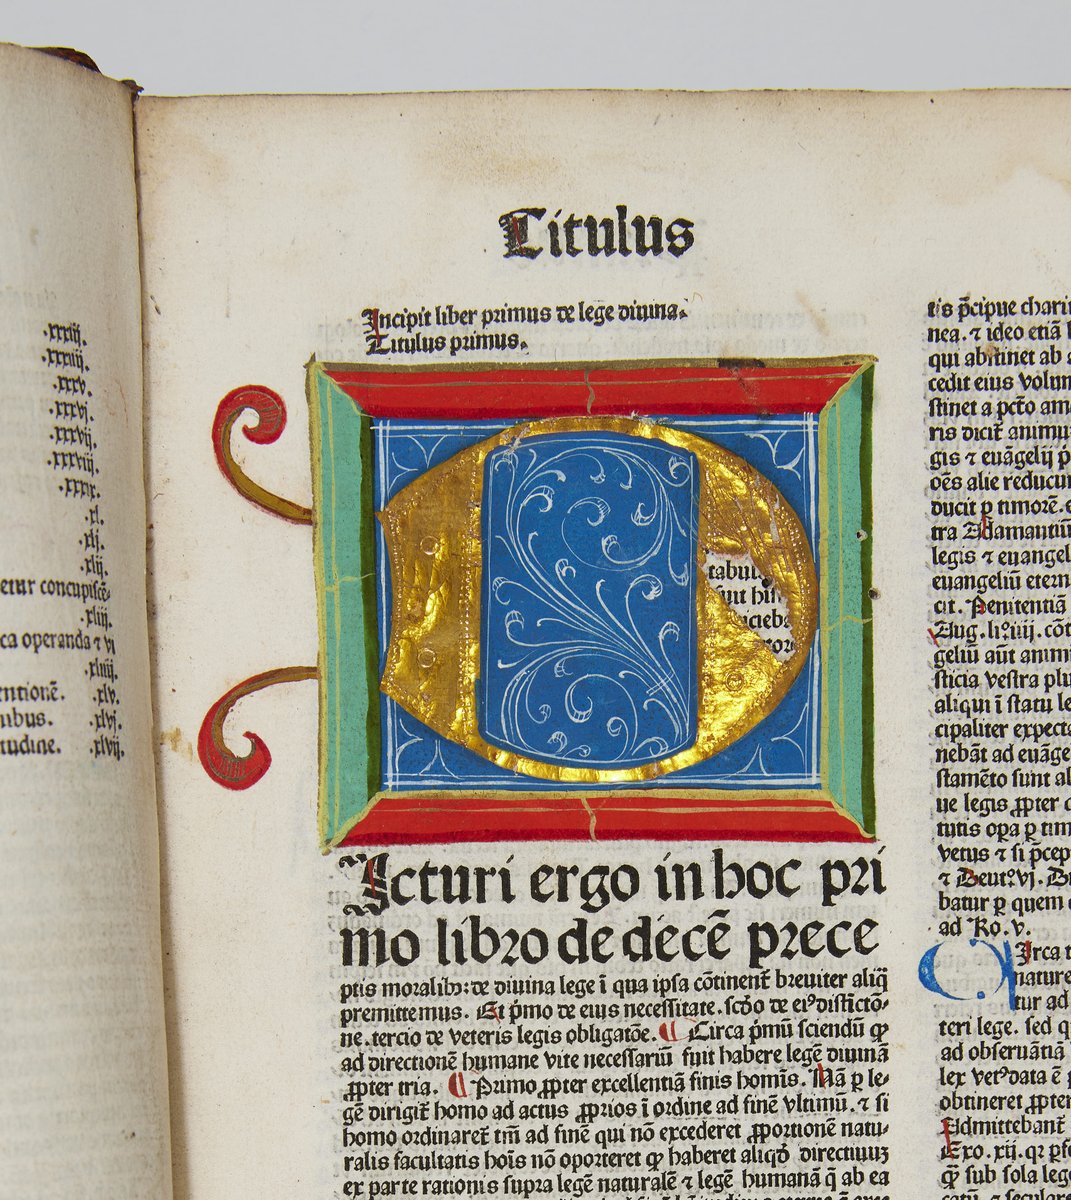 .xxxiij.
.xxxiiij.
.xxxv.
.xxxvj.
.xxxvij.
.xxxviij.
.xxxix.
.xl.
.xlj.
.xlij.
etur concupiscē-
.xliij.
ca operanda ⁊ vi
.xliiij.
entionē. .xlv.
nibus. .xlvj.
tudine. .xlvij.
Titulus
Incipit liber primus de lege diuina.
Titulus primus.
D
tabul
fuit his
ucieba
tor
Acturi ergo in hoc pri
mo libro de decē prece
ptis moralibꝫ: de diuina lege ī qua ipsa cōtinent̄ breuiter aliq̄
premittemus. Et p̄mo de eius necessitate. scdo de eiꝰ distīctō-
ne. tercio de veteris legis obligatōe. ¶ Circa p̄mū sciendū ꝙ
ad directionē humane vite necessariū fuit habere legē diuinā
ꝓpter tria. ¶ Primo ꝓpter excellentiā finis homīs. Nā ꝑ le-
gē dirigit̄ homo ad actus ꝓprios ī ordine ad finē vltimū. ⁊ si
homo ordinaret̄ tm̄ ad finē qui nō excederet ꝓportionē natu-
ralis facultatis hoīs nō oporteret ꝙ haberet aliqd directiuuꝫ
ex parte rationis supra legē naturalē ⁊ legē humanā q̄ ab ea
tis p̄cipue chari
nea. ⁊ ideo etiā
qui abstinet ab a
cedit eius volun
stinet a pctō am
ris dicit̄ animu
gis ⁊ euāgelij p̄
oēs alie reducun
ducit ꝑ timorē. e
tra Adamantiū
legis ⁊ euangel
euangeliū etern
cit. Penitentiā
Aug. li. iiij. cōt
geliū aūt animi
sticia vestra plu
aliqui ī statu le
cipaliter expecta
nebāt ad euāge
stamēto sunt al
ue legis ꝓpter
tutis opa ꝑ tim
vetus ⁊ si p̄cep
⁊ Deut. vj. D
batur ꝑ quem
ad Ro. v.
Circa
nature
tur ad
teri lege. sed q
ad obseruātiā
lex vetꝰ data ē
obtineret ꝓpter
Admittebant̄
Exo. xij. qr
ꝙ sub sola lege